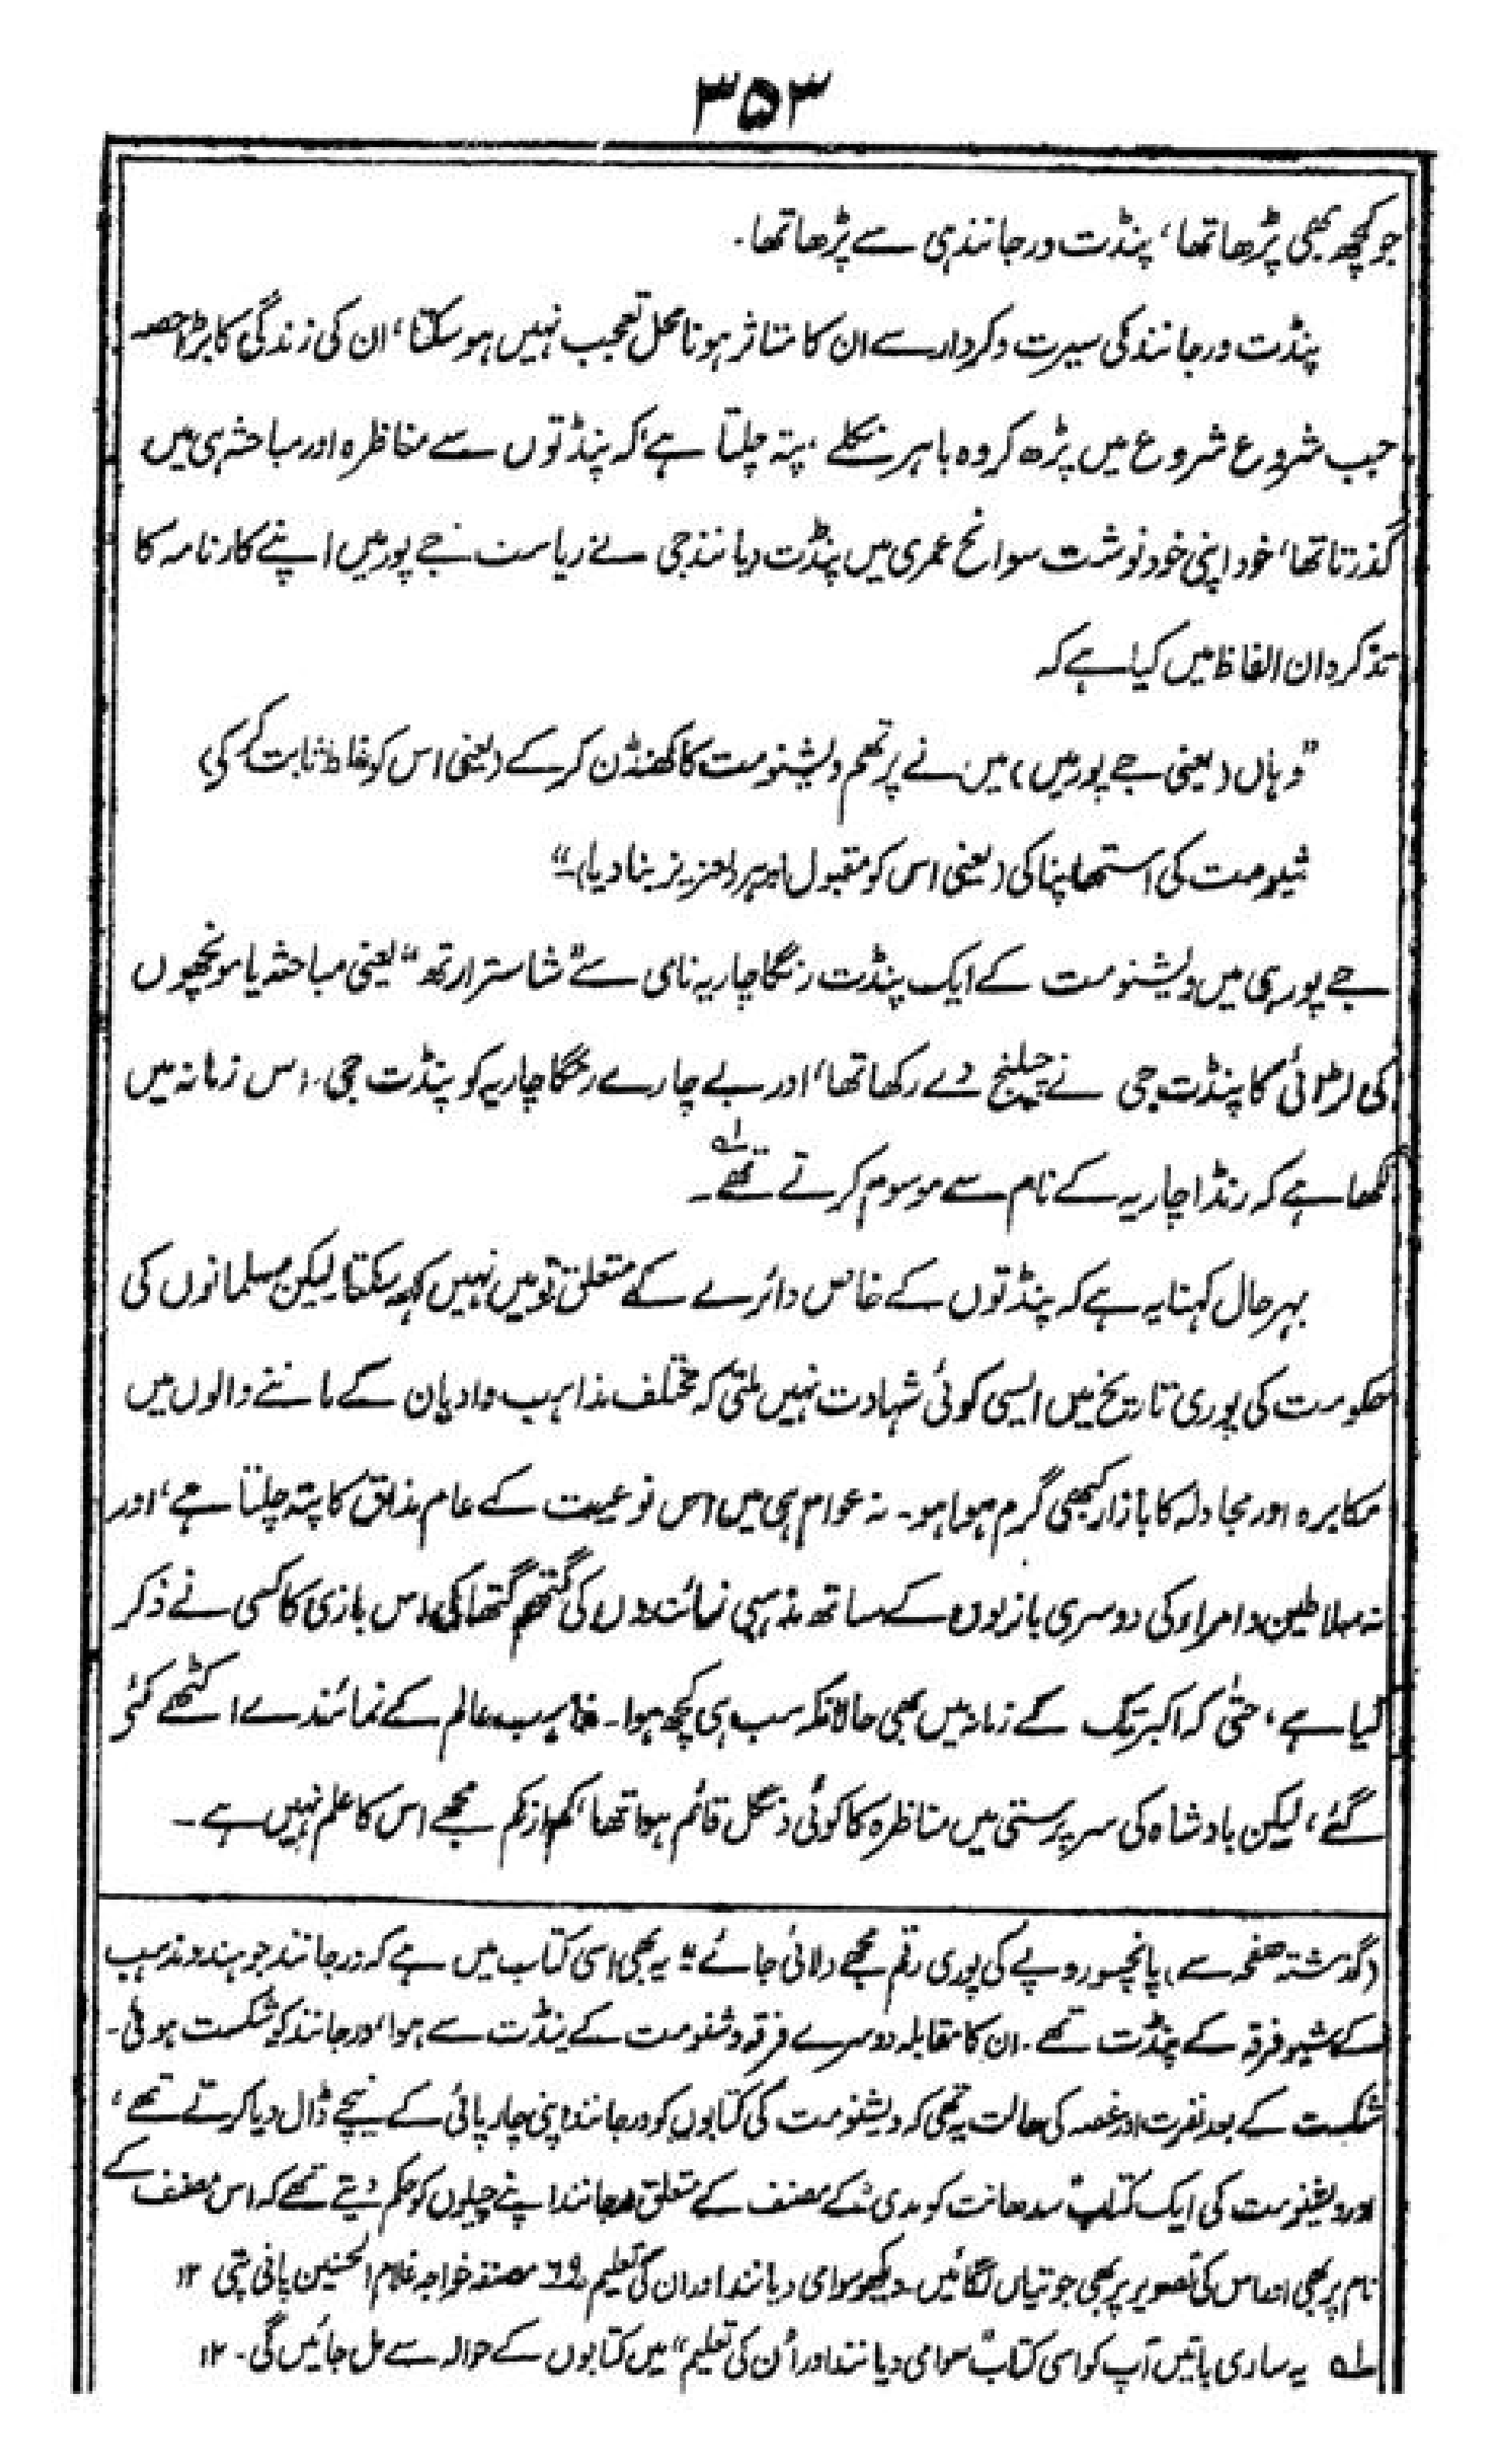 ۳۵۳
جو کچھ بھی پڑھا تھا، پنڈت ورجانند ہی سے پڑھا تھا۔
پنڈت ورجانند کی سیرت و کردار سے ان کا متاثر ہونا محل تعجب نہیں ہو سکتا، ان کی زندگی کا بڑا حصہ
جب شروع شروع میں پڑھ کر وہ باہر نکلے، پتہ چلتا ہے کہ پنڈتوں سے مناظرہ اور مباحثہ ہی میں
گذرتا تھا، خود اپنی خود نوشت سوانح عمری میں پنڈت دیانند جی نے ریاست جے پور میں اپنے کارنامہ کا
تذکرہ ان الفاظ میں کیا ہے کہ
"وہاں (یعنی جے پور میں) میں نے پرتھم ویشنو مت کا کھنڈن کر کے (یعنی اس کو غلط ثابت کر کی)
شیو مت کی استھاپنا کی (یعنی اس کو مقبول اور ہر دلعزیز بنا دیا)۔"
جے پور ہی میں ویشنو مت کے ایک پنڈت رنگا چاریہ نامی سے "شاستر ارتھ" یعنی مباحثہ یا مونچھوں
کی لڑائی کا پنڈت جی نے چیلنج دے رکھا تھا، اور بے چارے رنگا چاریہ کو پنڈت جی، اس زمانہ میں
لکھا ہے کہ رنڈا چاریہ کے نام سے موسوم کرتے تھے۔ لہ
بہر حال کہنا یہ ہے کہ پنڈتوں کے خاص دائرے کے متعلق تو میں نہیں کہہ سکتا۔ لیکن مسلمانوں کی
حکومت کی پوری تاریخ میں ایسی کوئی شہادت نہیں ملتی کہ مختلف مذاہب و ادیان کے ماننے والوں میں
مکابرہ اور مجادلہ کا بازار کبھی گرم ہوا ہو۔ نہ عوام ہی میں اس نوعیت کے عام مذاق کا پتہ چلتا ہے، اور
نہ سلاطین و امراء کی دوسری بازیوں کے ساتھ مذہبی نمائندوں کی گتھم گتھا کی اس بازی کا کسی نے ذکر
کیا ہے، حتیٰ کہ اکبر تک کے زمانہ میں بھی حالانکہ سب ہی کچھ ہوا۔ مذاہب عالم کے نمائندے اکٹھے کئے
گئے، لیکن بادشاہ کی سرپرستی میں مناظرہ کا کوئی دنگل قائم ہوا تھا، کم از کم مجھے اس کا علم نہیں ہے۔
(گذشتہ صفحہ سے) پانچسو روپے کی پوری رقم مجھے دلائی جائے" یہ بھی اسی کتاب میں ہے کہ ورجانند جو ہندو مذہب
کے شیو فرقہ کے پنڈت تھے۔ ان کا مقابلہ دوسرے فرقہ وشنو مت کے پنڈت سے ہوا، ورجانند کو شکست ہوئی۔
شکست کے بعد نفرت اور غصہ کی حالت یہ تھی کہ ویشنو مت کی کتابوں کو ورجانند اپنی چارپائی کے نیچے ڈال دیا کرتے تھے،
اور ویشنو مت کی ایک کتاب سدھانت کومدی کے مصنف کے متعلق ورجانند اپنے چیلوں کو حکم دیتے تھے کہ اس مصنف کے
نام پر بھی اور اس کی تصویر پر بھی جوتیاں لگائیں۔ دیکھو سوامی دیانند اور ان کی تعلیم ص۶۹ مصنفہ خواجہ غلام الحسنین پانی پتی ۱۲
لہ یہ ساری باتیں آپ کو اسی کتاب "سوامی دیانند اور اُن کی تعلیم" میں کتابوں کے حوالہ سے مل جائیں گی۔ ۱۲